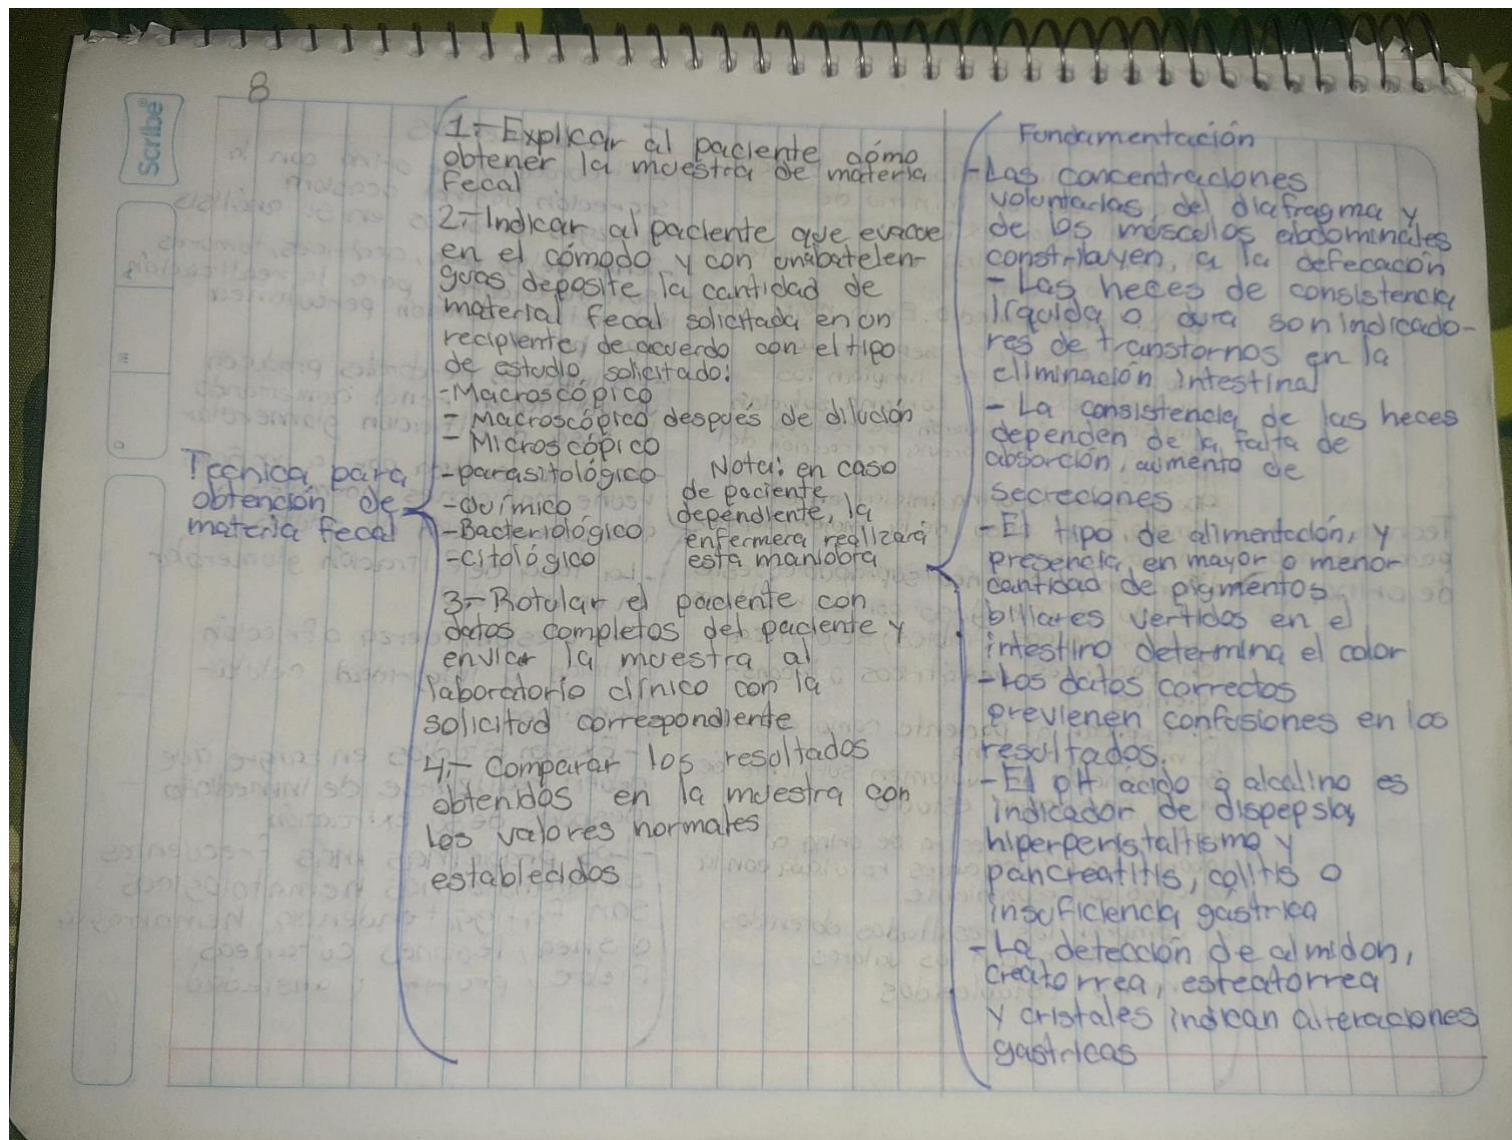 8
Scribe
Tecnica para
obtención de
materia fecal
1.- Explicar al paciente cómo
obtener la muestra de materia
fecal
2.- Indicar al paciente que evacue
en el cómodo y con unabatelen-
guas deposite la cantidad de
material fecal solicitada en un
recipiente, de acuerdo con el tipo
de estudio solicitado:
-Macroscópico
- Macroscópico después de dilución
- Microscópico
-parasitológico
-Químico
-Bacteriológico
-citológico
Nota: en caso
de paciente
dependiente, la
enfermera realizará
esta maniobra
3.- Rotular el paciente con
datos completos del paciente y
enviar la muestra al
laboratorio clínico con la
solicitud correspondiente
4.- Comparar los resultados
obtenidos en la muestra con
los valores normales
establecidos
Fundamentación
-Las concentraciones
voluntarias, del diafragma y
de los músculos abdominales
constribuyen, a la defecación
- Las heces de consistencia
líquida o dura son indicado-
res de transtornos en la
eliminación intestinal
- La consistencia de las heces
dependen de la falta de
absorción, aumento de
secreciones
- El tipo de alimentación, y
presencia en mayor o menor
cantidad de pigmentos
biliares vertidos en el
intestino determina el color
-Los datos correctos
previenen confusiones en los
resultados.
- El pH acido o alcalino es
indicador de dispepsia,
hiperperistaltismo y
pancreatitis, colitis o
insuficiencia gastrica
- La detección de almidon,
creatorrea, esteatorrea
y cristales indican alteraciones
gastricas